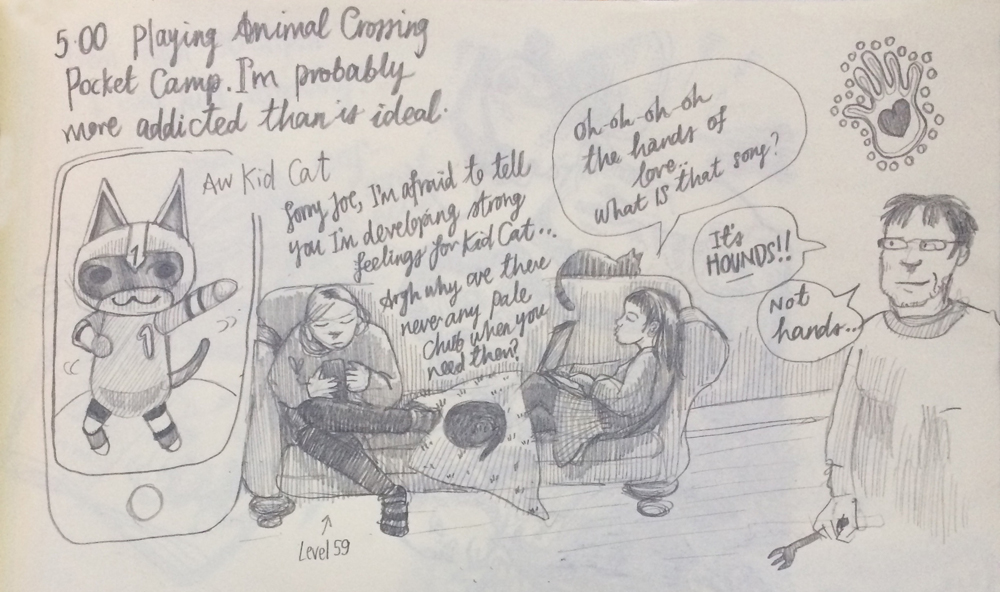 5.00 Playing Animal Crossing
Pocket Camp. I'm probably
more addicted than is ideal.
Aw Kid Cat
1
1
Sorry Joe, I'm afraid to tell
you I'm developing strong
feelings for Kid Cat...
Argh why are there
never any pale
chub when you
need them?
Level 59
Oh-oh-oh-oh
the hands of
love..
what IS that song?
It's
HOUNDS!!
Not
hands..